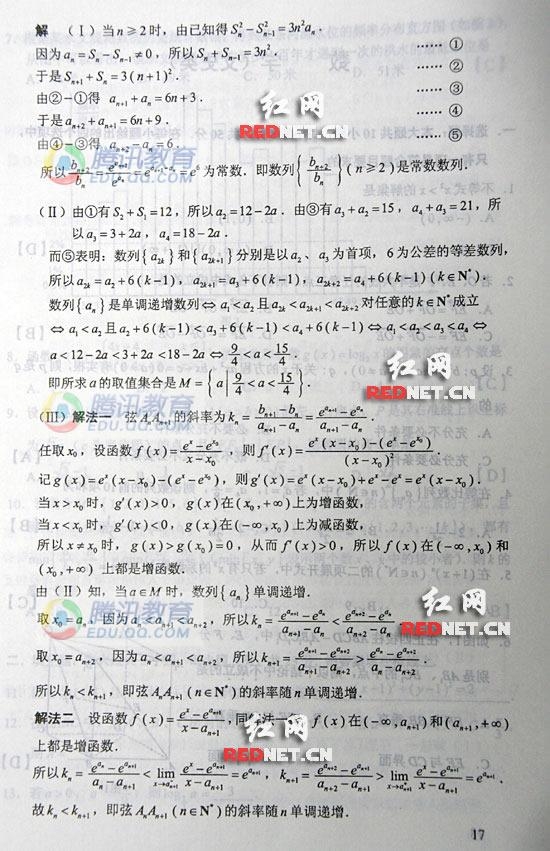 解 (Ⅰ)当n≥2时,由已知得S²ₙ-S²ₙ₋₁=3n²aₙ.
因为aₙ=Sₙ-Sₙ₋₁≠0,所以Sₙ+Sₙ₋₁=3n². …… ①
于是Sₙ₊₁+Sₙ=3(n+1)². …… ②
由②-①得 aₙ₊₁+aₙ=6n+3. …… ③
于是aₙ₊₂+aₙ₊₁=6n+9. …… ④
由④-③得 aₙ₊₂-aₙ=6. …… ⑤
所以 bₙ₊₂/bₙ=e^(aₙ₊₂)/e^(aₙ)=e^(aₙ₊₂-aₙ)=e⁶为常数. 即数列{bₙ₊₂/bₙ}(n≥2)是常数数列.
(Ⅱ)由①有S₂+S₁=12,所以a₂=12-2a. 由③有a₃+a₂=15,a₄+a₃=21,所
以a₃=3+2a,a₄=18-2a.
而⑤表明:数列{a₂ₖ}和{a₂ₖ₊₁}分别是以a₂、a₃为首项,6为公差的等差数列,
所以a₂ₖ=a₂+6(k-1),a₂ₖ₊₁=a₃+6(k-1),a₂ₖ₊₂=a₄+6(k-1)(k∈N*).
数列{aₙ}是单调递增数列⇔a₁<a₂且a₂ₖ<a₂ₖ₊₁<a₂ₖ₊₂对任意的k∈N*成立
⇔a₁<a₂且a₂+6(k-1)<a₃+6(k-1)<a₄+6(k-1)⇔a₁<a₂<a₃<a₄⇔
a<12-2a<3+2a<18-2a⇔9/4<a<15/4.
即所求a的取值集合是M={a|9/4<a<15/4}.
(Ⅲ)解法一 弦AₙAₙ₊₁的斜率为kₙ=(bₙ₊₁-bₙ)/(aₙ₊₁-aₙ)=(e^(aₙ₊₁)-e^(aₙ))/(aₙ₊₁-aₙ).
任取x₀,设函数f(x)=(e^x-e^(x₀))/(x-x₀),则f′(x)=(e^x(x-x₀)-(e^x-e^(x₀)))/(x-x₀)².
记g(x)=e^x(x-x₀)-(e^x-e^(x₀)),则g′(x)=e^x(x-x₀)+e^x-e^x=e^x(x-x₀).
当x>x₀时,g′(x)>0,g(x)在(x₀,+∞)上为增函数,
当x<x₀时,g′(x)<0,g(x)在(-∞,x₀)上为减函数,
所以x≠x₀时,g(x)>g(x₀)=0,从而f′(x)>0,所以f(x)在(-∞,x₀)和
(x₀,+∞)上都是增函数.
由(Ⅱ)知,当a∈M时,数列{aₙ}单调递增.
取x₀=aₙ,因为aₙ<aₙ₊₁<aₙ₊₂,所以kₙ=(e^(aₙ₊₁)-e^(aₙ))/(aₙ₊₁-aₙ)<(e^(aₙ₊₂)-e^(aₙ))/(aₙ₊₂-aₙ).
取x₀=aₙ₊₂,因为aₙ<aₙ₊₁<aₙ₊₂,所以kₙ₊₁=(e^(aₙ₊₁)-e^(aₙ₊₂))/(aₙ₊₁-aₙ₊₂)>(e^(aₙ)-e^(aₙ₊₂))/(aₙ-aₙ₊₂).
所以kₙ<kₙ₊₁,即弦AₙAₙ₊₁(n∈N*)的斜率随n单调递增.
解法二 设函数f(x)=(e^x-e^(aₙ₊₁))/(x-aₙ₊₁),同解法一得,f(x)在(-∞,aₙ₊₁)和(aₙ₊₁,+∞)
上都是增函数.
所以kₙ=(e^(aₙ)-e^(aₙ₊₁))/(aₙ-aₙ₊₁)<lim x→aₙ₊₁ (e^x-e^(aₙ₊₁))/(x-aₙ₊₁)=e^(aₙ₊₁),kₙ₊₁=(e^(aₙ₊₂)-e^(aₙ₊₁))/(aₙ₊₂-aₙ₊₁)>lim x→aₙ₊₁ (e^x-e^(aₙ₊₁))/(x-aₙ₊₁)=e^(aₙ₊₁).
故kₙ<kₙ₊₁,即弦AₙAₙ₊₁(n∈N*)的斜率随n单调递增.
17
红网
REDNET.CN
腾讯教育
EDU.QQ.COM
红网
REDNET.CN
腾讯教育
EDU.QQ.COM
红网
REDNET.CN
腾讯教育
EDU.QQ.COM
红网
REDNET.CN